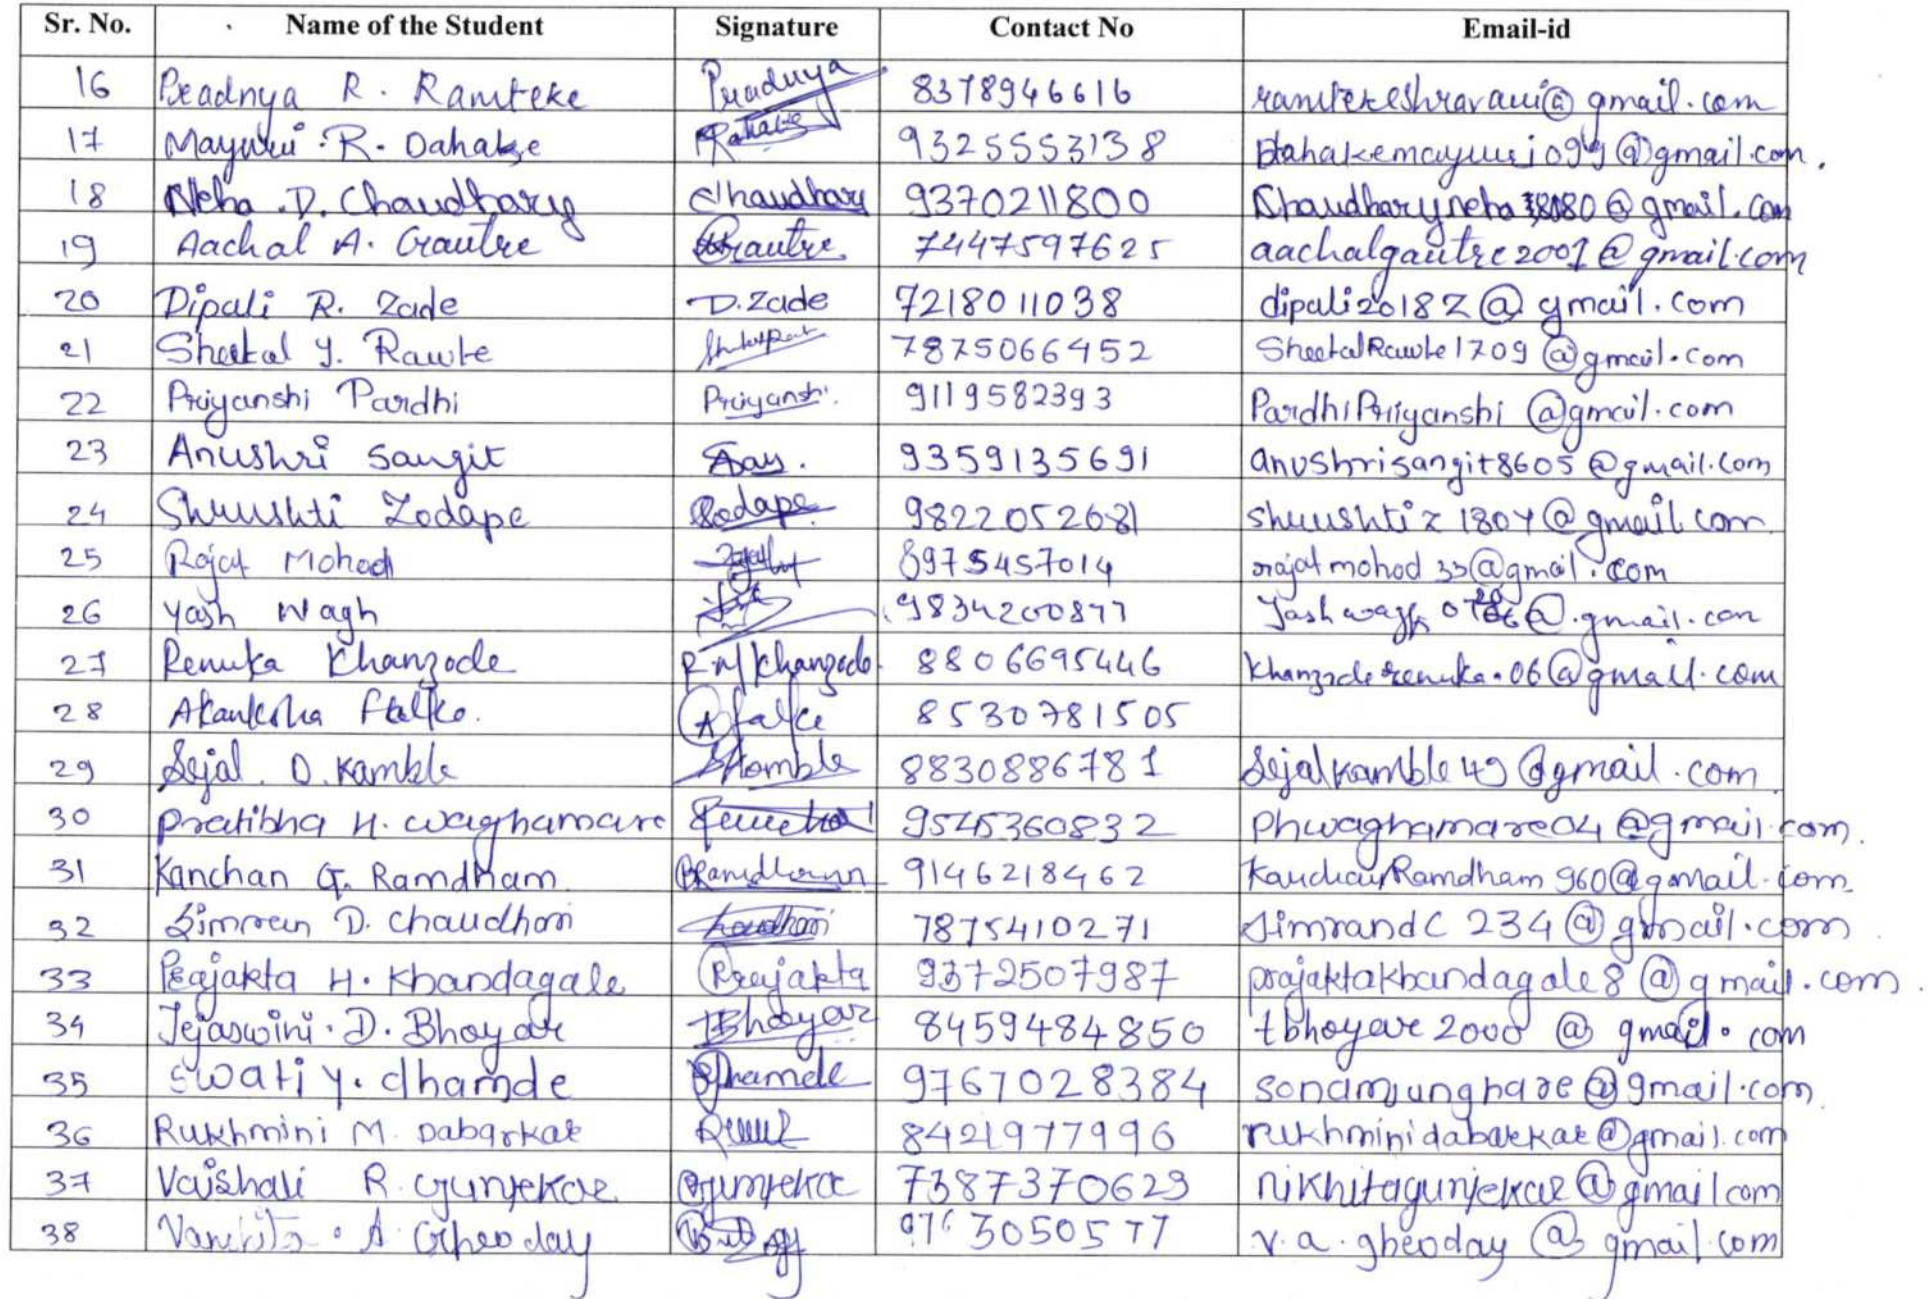 Sr. No. Name of the Student Signature Contact No Email-id
16 Pradnya R. Ramteke Pradnya 8378946616 ramtekeshravani@gmail.com
17 Mayuri R. Dahake 9325553138 @gmail.com.
18 Neha D. Chaudhary Chaudhary 9370211800 @gmail.com
19 Aachal A. Gautre Gautre 7447597625 aachalgautre2001@gmail.com
20 Dipali R. Zade D.Zade 7218011038 dipali2018Z@gmail.com
21 Sheetal Y. Rawte 7875066452 SheetalRawte1709@gmail.com
22 Priyanshi Pardhi Priyanshi. 9119582393 PardhiPriyanshi@gmail.com
23 Anushri Sangit 9359135691 anushrisangit8605@gmail.com
24 Shrushti Zodape Zodape 9822052681 @gmail.com
25 Rajat Mohod 8975457014 rajatmohod33@gmail.com
26 Yash Wagh 9834200877
27 Renuka Khanzode R M Khanzode 8806695446 khanzoderenuka.06@gmail.com
28 Akanksha 8530781505
29 Sejal. D. Kamble Kamble 8830886781 Sejalkamble49@gmail.com
30 Pratibha H. Waghamare 9545360832 phwaghamare04@gmail.com.
31 Kanchan G. Ramdham Ramdham 9146218462 KanchanRamdham960@gmail.com
32 Simran D. Chaudhari Chaudhari 7875410271 Simrandc234@gmail.com
33 Prajakta H. Khandagale Prajakta 9372507987 prajaktakhandagale8@gmail.com.
34 Tejaswini. D. Bhoyar TBhoyar 8459484850 tbhoyar2000@gmail.com
35 Swati Y. dhamde Dhamde 9767028384 sonamjunghare@gmail.com
36 Rukhmini M. Dabarkar 8421977996 rukhminidabarkar@gmail.com
37 Vaishali R. Gunjekar Gunjekar 7387370623 nikhitagunjekar@gmail.com
38 A. Gheoday 3050577 v.a.gheoday@gmail.com